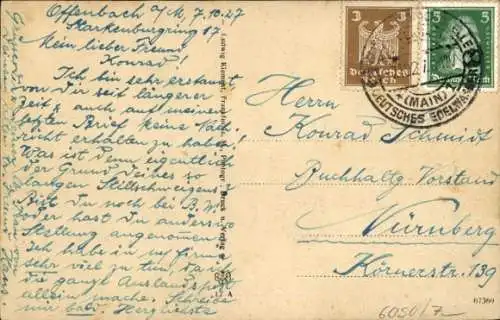 Offenbach a/M, 7.10.27
Starkenburgring 17
Mein lieber Freund
Konrad!
Ich bin sehr erstaunt
von dir seit längerer
Zeit & auch auf meinen
letzten Brief keine Nach-
richt erhalten zu haben!
Was ist denn eigentlich
der Grund deines so
langen Stillschweigens
Bist Du noch bei B.W.
oder hast Du anders.
Stellung angenommen
Ich habe in m. Firma
sehr viel zu tun, da ich
die ganze Auslandspost
allein mache. Schreibe
mir bald. Herzlichste
Herrn
Konrad Schmidt
Buchhaltg-Vorstand
Nürnberg
Körnerstr. 139
3
3
5
5
(MAIN)
DEUTSCHES EDELWA
07369
6050/7